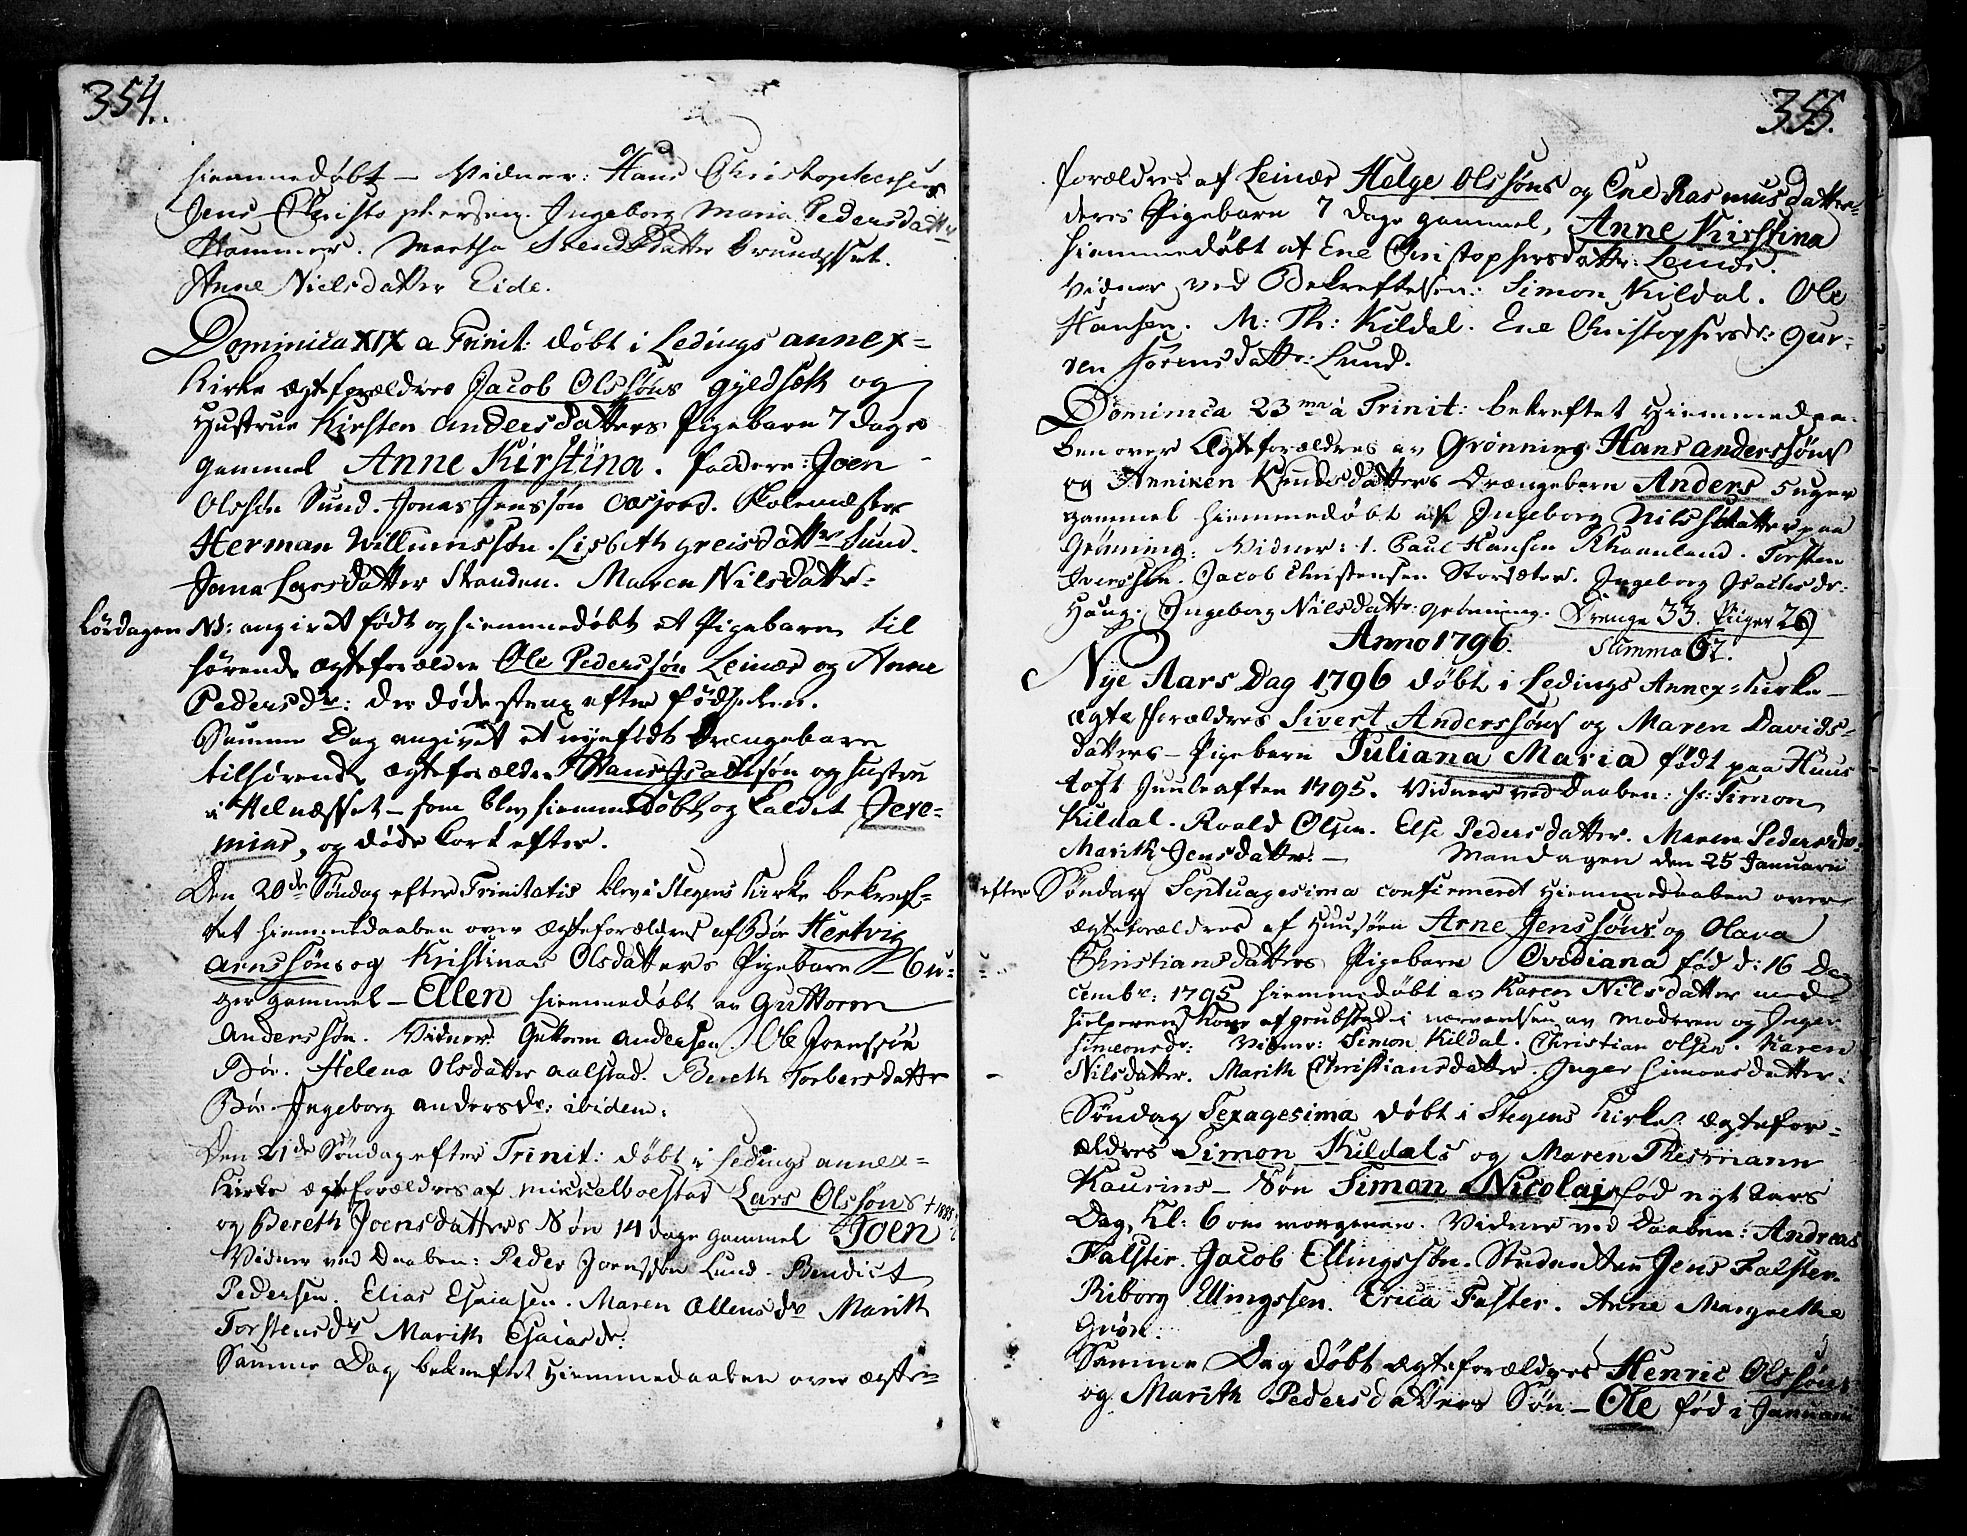 354.
hiemmedøbt – Vidner: Hans Christophersen
Jens Christophersen. Ingeborg Maria Pedersdatter
Hammer. Martha Svendsdatter Brunæsset.
Anne Nielsdatter Eide.
Dominica XIX a Trinit: døbt i Ledings annex-
Kirke ægteforældres Jacob Olssøns gyldsæth og
Hustrue Kirsten Andersdatters Pigebarn 7 Dage
gammel Anne Kirstina. faddere: Joen
Olssøn Sund. Jonas Jensson Aasjord. Skolemæster
Herman Willumssøn. Lisbeth greisdattr Sund.
Jana Larsdatter Stranden. Maren Nilsdattr:
Lørdagen Nd: angivet født og hiemmedøbt et Pigebarn til
hørende ægteforældre Ole Pederssøn Leinæs og Anne
Pedersdr: der døde strax efter fødselen.
Samme Dag angivet et nyefødt Drengebarn
tilhørende ægteforældre Hans Isachsøn og hustru
i Helnæsset – som blev hiemmedøbt og kaldet Jere-
mias, og døde kort efter.
Den 20de Søndag efter Trinitatis blev i Stegens Kirke bekref-
tet hiemmedaaben over ægteforældres af Bør Hertvig
Arnssøns og Kristinas Olsdatters Pigebarn – 6 u-
ger gammel – Ellen hiemmedøbt av Guttorm
Anderssøn. Vidner Guttorm Andersen. Ole Joenssøn
Bør. Helena Olsdatter Aalstad. Bereth Torbersdattr
Bør. Ingeborg Andersdr: ibidem.
Den 21de Søndag efter Trinit: døbt i Ledings annex-
Kirke ægteforældres af Mickelboestad Lars Olssøns
og Bereth Joensdatters Søn 14 dage gammel Joen
Vidner ved Daaben: Peder Joenssøn Lund. Bendict
Pedersen. Elias Esaiasen. Maren Ellensdr Marith
Torstensdr Marith Esaiasdr:
Samme Dag bekreftet Hiemmedaaben over ægte-
355.
forældres af Leinæs Helge Olssøns og Ene Rasmusdatter
deres Pigebarn 7 Dage gammel, Anne Kirstina
hiemmedøbt af Ene Christophersdattr: Leines.
Vidner ved Bekreftelsen: Simon Kildal. Ole
Hansen. M: Th: Kildal. Ene Christophersdr: Gur-
ren Sørensdattr: Lund.
Dominica 23ma à Trinit: bekreftet Hiemmedaa-
ben over Ægteforældres av Grønning Hans Anderssøns
og Anniken Knudsdatters Drængebarn Anders 5 uger
gammel hiemmedøbt af Ingeborg Nilsdatter paa
Grønning. Vidner: 1. Paul Hansen Skaanland. Torsten
Iverssøn. Jacob Christensen Storsæter. Ingeborg Isachsdr:
Haug. Ingeborg Nilsdattr: Grønning. Drenge 33. Piger 29
Anno 1796. Summa 62.
Nye Aars Dag 1796 døbt i Ledings Annex-Kirke
ægteforældres Sivert Anderssøns og Maren Davids-
datters – Pigebarn Juliana Maria født paa Huus
toft Juuleaften 1795. Vidner ved Daaben: hr: Simon
Kildal. Roald Olsen. Else Pedersdatter. Maren Pedersdr
Marith Jensdattr: – Mandagen den 25 Januarii
efter Søndag Septuagesima confirmeret Hiemmedaaben over
ægteforældres af Huusøen Arne Jenssøns og Olava
Christiansdatters Pigebarn Ovediana fød d: 16 De
cembr: 1795 hiemmedøbt av Karen Nilsdatter med
hielperens Kone af Grubstad i nærværelsen av Moderen og Inger
Simeonsdr: Vidner: Simon Kildal. Christian Olsen. Karen
Nilsdatter. Marith Christiansdatter. Inger Simonsdatter.
Søndag Sexagesima døbt i Stegens Kirke ægtefor-
ældres Simon Kildals og Maren Thesmann
Kaurins – Søn Simon Nicolai fød nyt Aars
Dag, Kl: 6 om morgenen. Vidner ved Daaben: Andreas
Falster. Jacob Ellingssøn. Studenten Jens Falster.
Riborg Ellingssen. Erica Falster. Anne Margrethe
Grøn.
Samme Dag døbt ægteforældres Henric Olssøns
og Marith Pedersdatters Søn – Ole fød i Januari